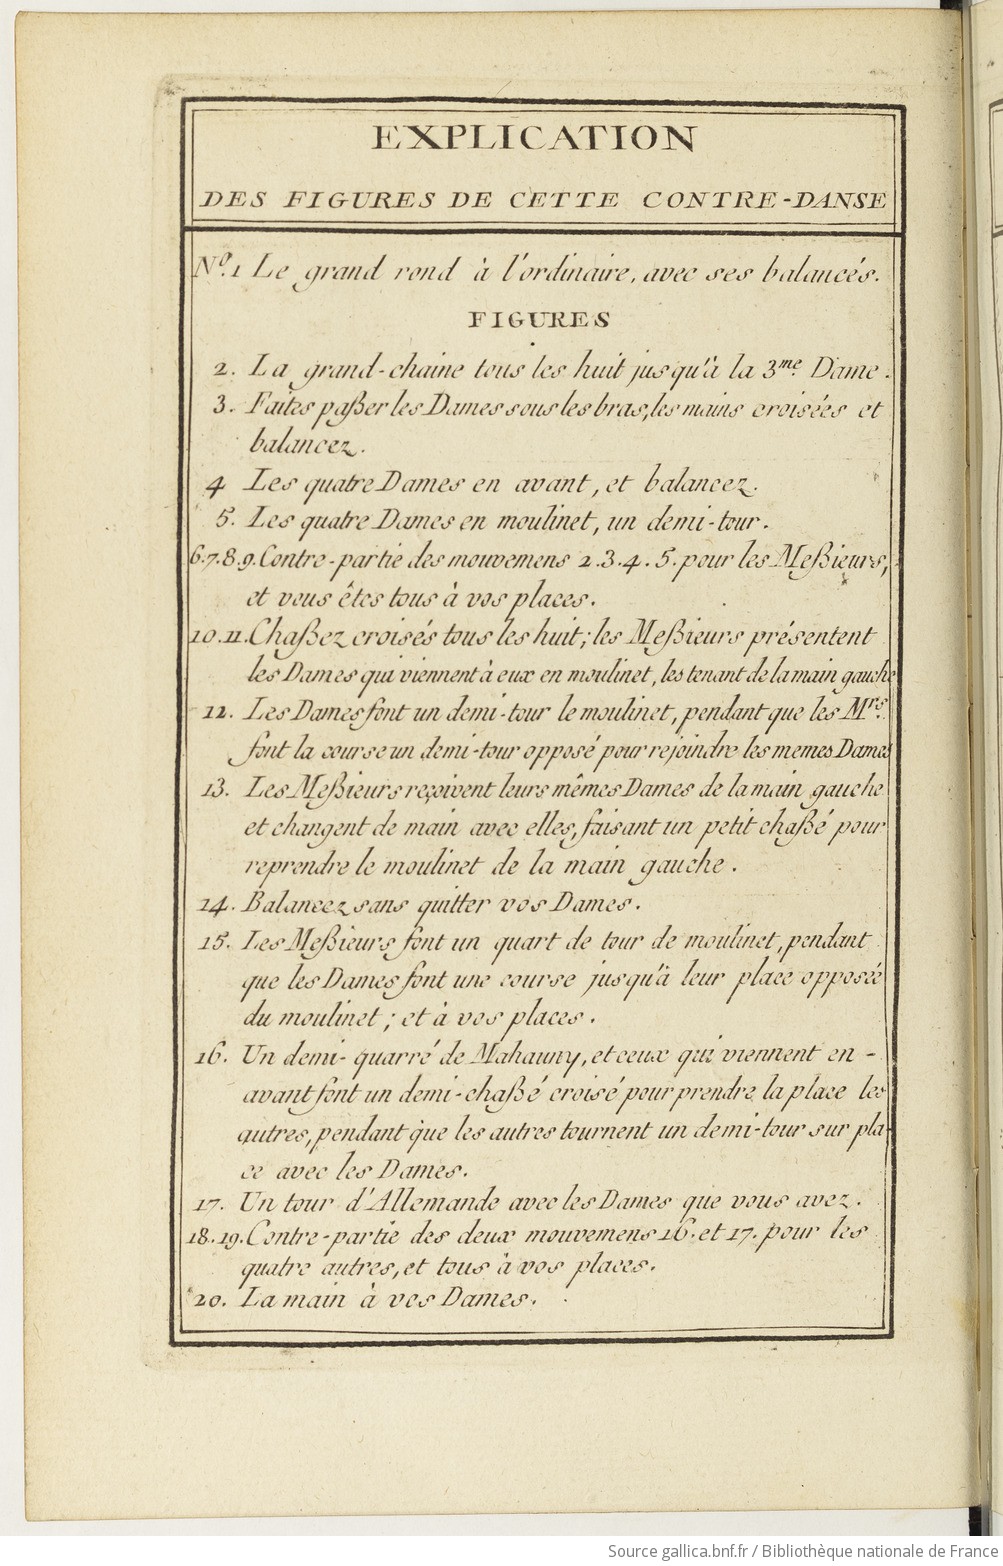 EXPLICATION
DES FIGURES DE CETTE CONTRE-DANSE
Nº. 1 Le grand rond à l'ordinaire, avec ses balancés.
FIGURES
2. La grand-chaine tous les huit jusqu'à la 3me. Dame.
3. Faites paßer les Dames sous les bras, les mains croisées et
balancez.
4 Les quatre Dames en avant, et balancez.
5. Les quatre Dames en moulinet, un demi-tour.
6.7.8.9. Contre-partie des mouvemens 2.3.4.5. pour les Meßieurs,
et vous êtes tous à vos places.
10.11. Chaßez croisés tous les huit; les Meßieurs présentent
les Dames qui viennent à eux en moulinet, les tenant de la main gauche
12. Les Dames font un demi-tour le moulinet, pendant que les Mrs.
font la course un demi-tour opposé pour rejoindre les memes Dames
13. Les Meßieurs reçoivent leurs mêmes Dames de la main gauche
et changent de main avec elles, faisant un petit chaßé pour
reprendre le moulinet de la main gauche.
14. Balancez sans quitter vos Dames.
15. Les Meßieurs font un quart de tour de moulinet, pendant
que les Dames font une course jusqu'à leur place opposée
du moulinet; et à vos places.
16. Un demi-quarré de Mahauny, et ceux qui viennent en-
avant font un demi-chaßé croisé pour prendre la place les
autres, pendant que les autres tournent un demi-tour sur pla-
ce avec les Dames.
17. Un tour d'Allemande avec les Dames que vous avez.
18.19. Contre-partie des deux mouvemens 16. et 17. pour les
quatre autres, et tous à vos places.
20. La main à vos Dames.
Source gallica.bnf.fr / Bibliothèque nationale de France